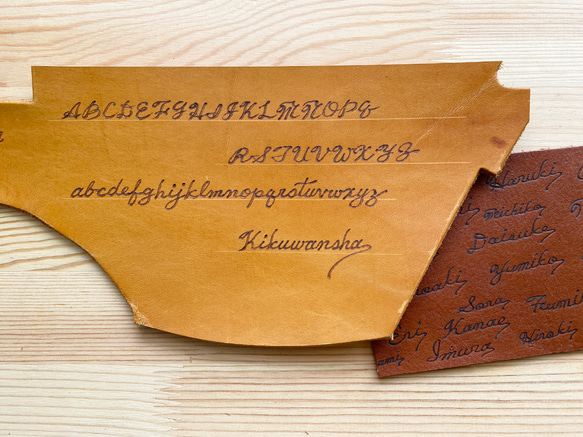 ABCDEFGHIJKLMNOPQ
RSTUVWXYZ
abcdefghijklmnopqrstuvwxyz
Kikuwansha
Haruki
Michiko
Daisuke
Yumiko
Sora
Eri Kanae Hiroki
Imura